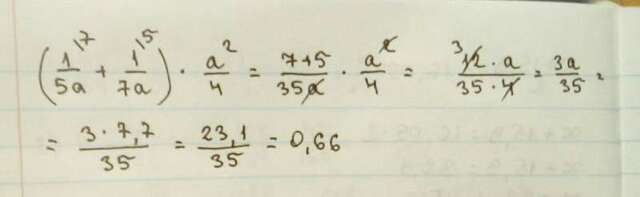 (1/5a ⁷ + 1/7a ⁵) · a²/4 = 7+5/35a · a²/4 = ³12 · a/35 · 4 = 3a/35 =
= 3 · 7,7/35 = 23,1/35 = 0,66